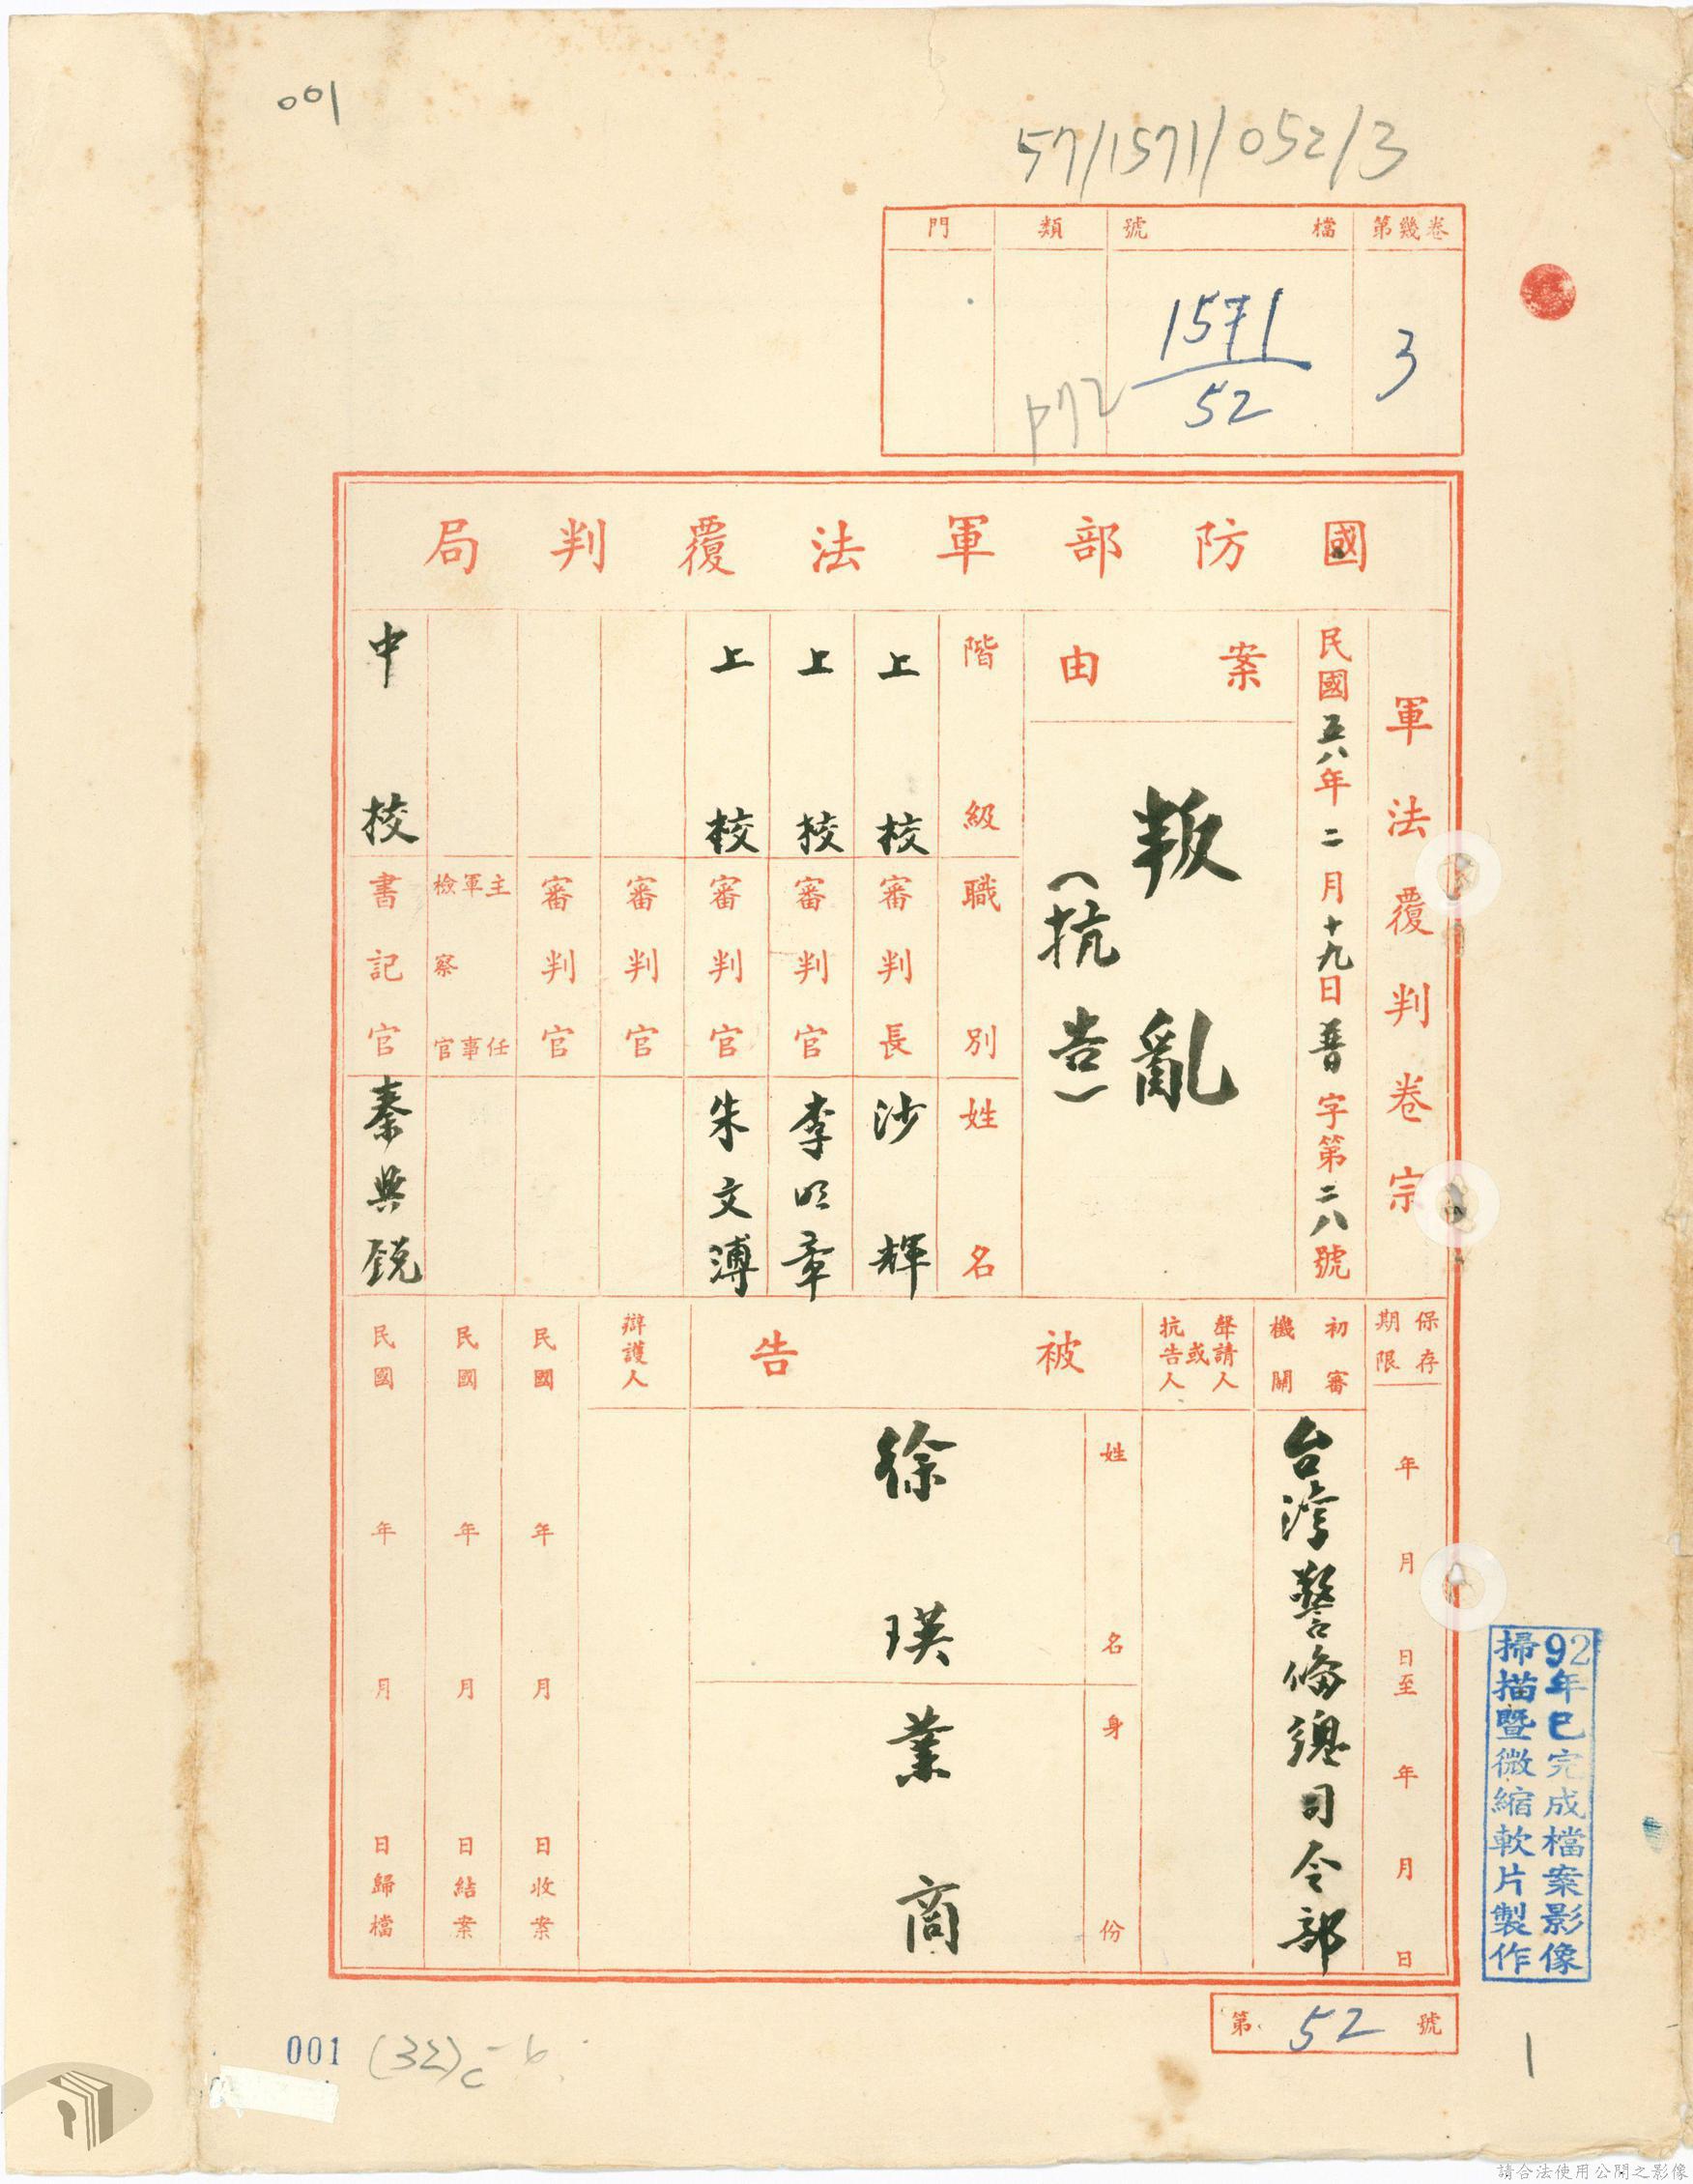 001
57/1571/052/3
第幾卷 3
檔號 1571/52
類
門
p72
國防部軍法覆判局
軍法覆判卷宗
民國五八年二月十九日普字第二八號
案由
叛亂
（抗告）
階級 職別 姓名
上校 審判長 沙輝
上校 審判官 李明章
上校 審判官 朱文溥
審判官
審判官
主任軍事檢察官
中校 書記官 秦興銳
保存期限
年月日至年月日
初審機關
台灣警備總司令部
聲請人或抗告人
被告
姓名 徐瑛
身份 業商
辯護人
民國年月日收案
民國年月日結案
民國年月日歸檔
第52號
92年已完成檔案影像
掃描暨微縮軟片製作
001
1
請合法使用公開之影像